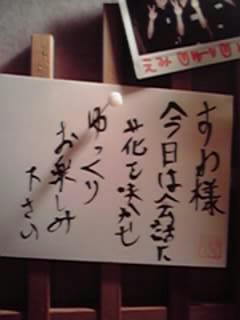 すわ様
今日は会話に
花を咲かせ
ゆっくり
お楽しみ
下さい